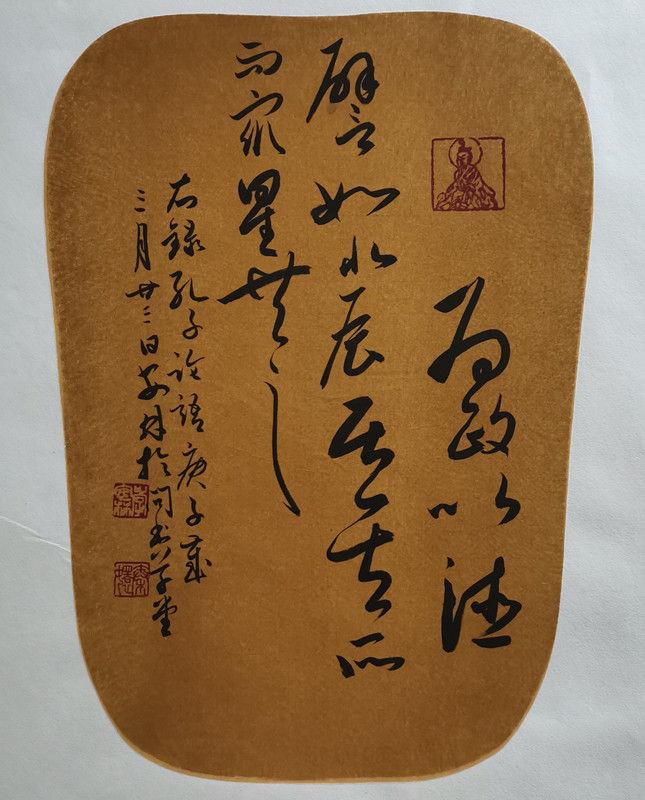 為政以德
譬如北辰居其所
而眾星共之
右錄孔子論語庚子歲
三月廿三日於草堂